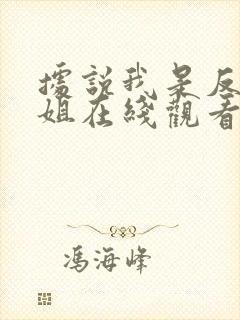 據說我是反
姐在綫觀看
馮海峰